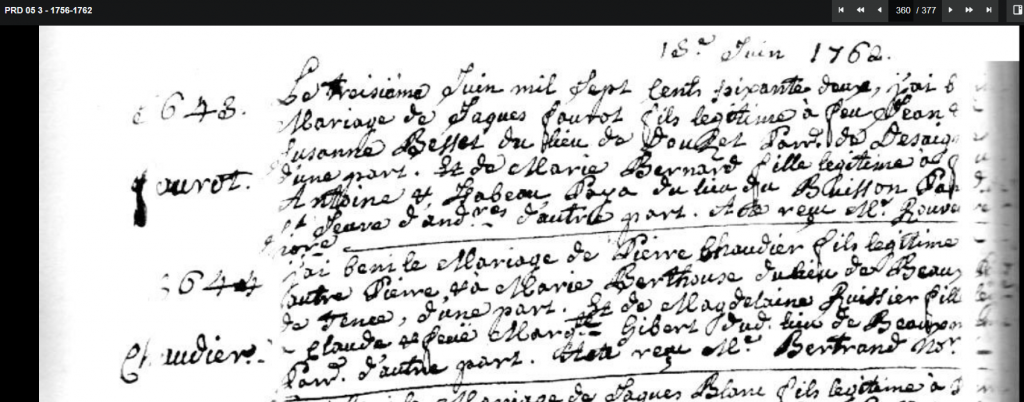 PRD 05 3 - 1756-1762
360 / 377
18.e Juin 1762.
Le troisième Juin mil sept cents soixante deux, j'ai b
6643.
Mariage de Jaques fourot fils legitime à feu Jean
Susanne Besset du lieu de Par. de Desaig
d'une part. Et de Marie Bernard fille legitime à
fourot.
Antoine & Isabeau Paya du lieu du Buisson Par
St Jeure d'and.res d'autre part. Acte reçu M.e Rouve
nore
j'ai beni le Mariage de Pierre Chaudier fils legitime
6644
autre Pierre, & à Marie Berthouse du lieu de Beau
de Tence, d'une part. Et de Magdelaine Ruissier fill
Claude & feüe Marg.te Gibert dud. lieu de Beaupo
Chaudier.
Par. d'autre part. Acte reçu M.e Bertrand Nor.
Mariage de Jaques Blanc fils legitime à